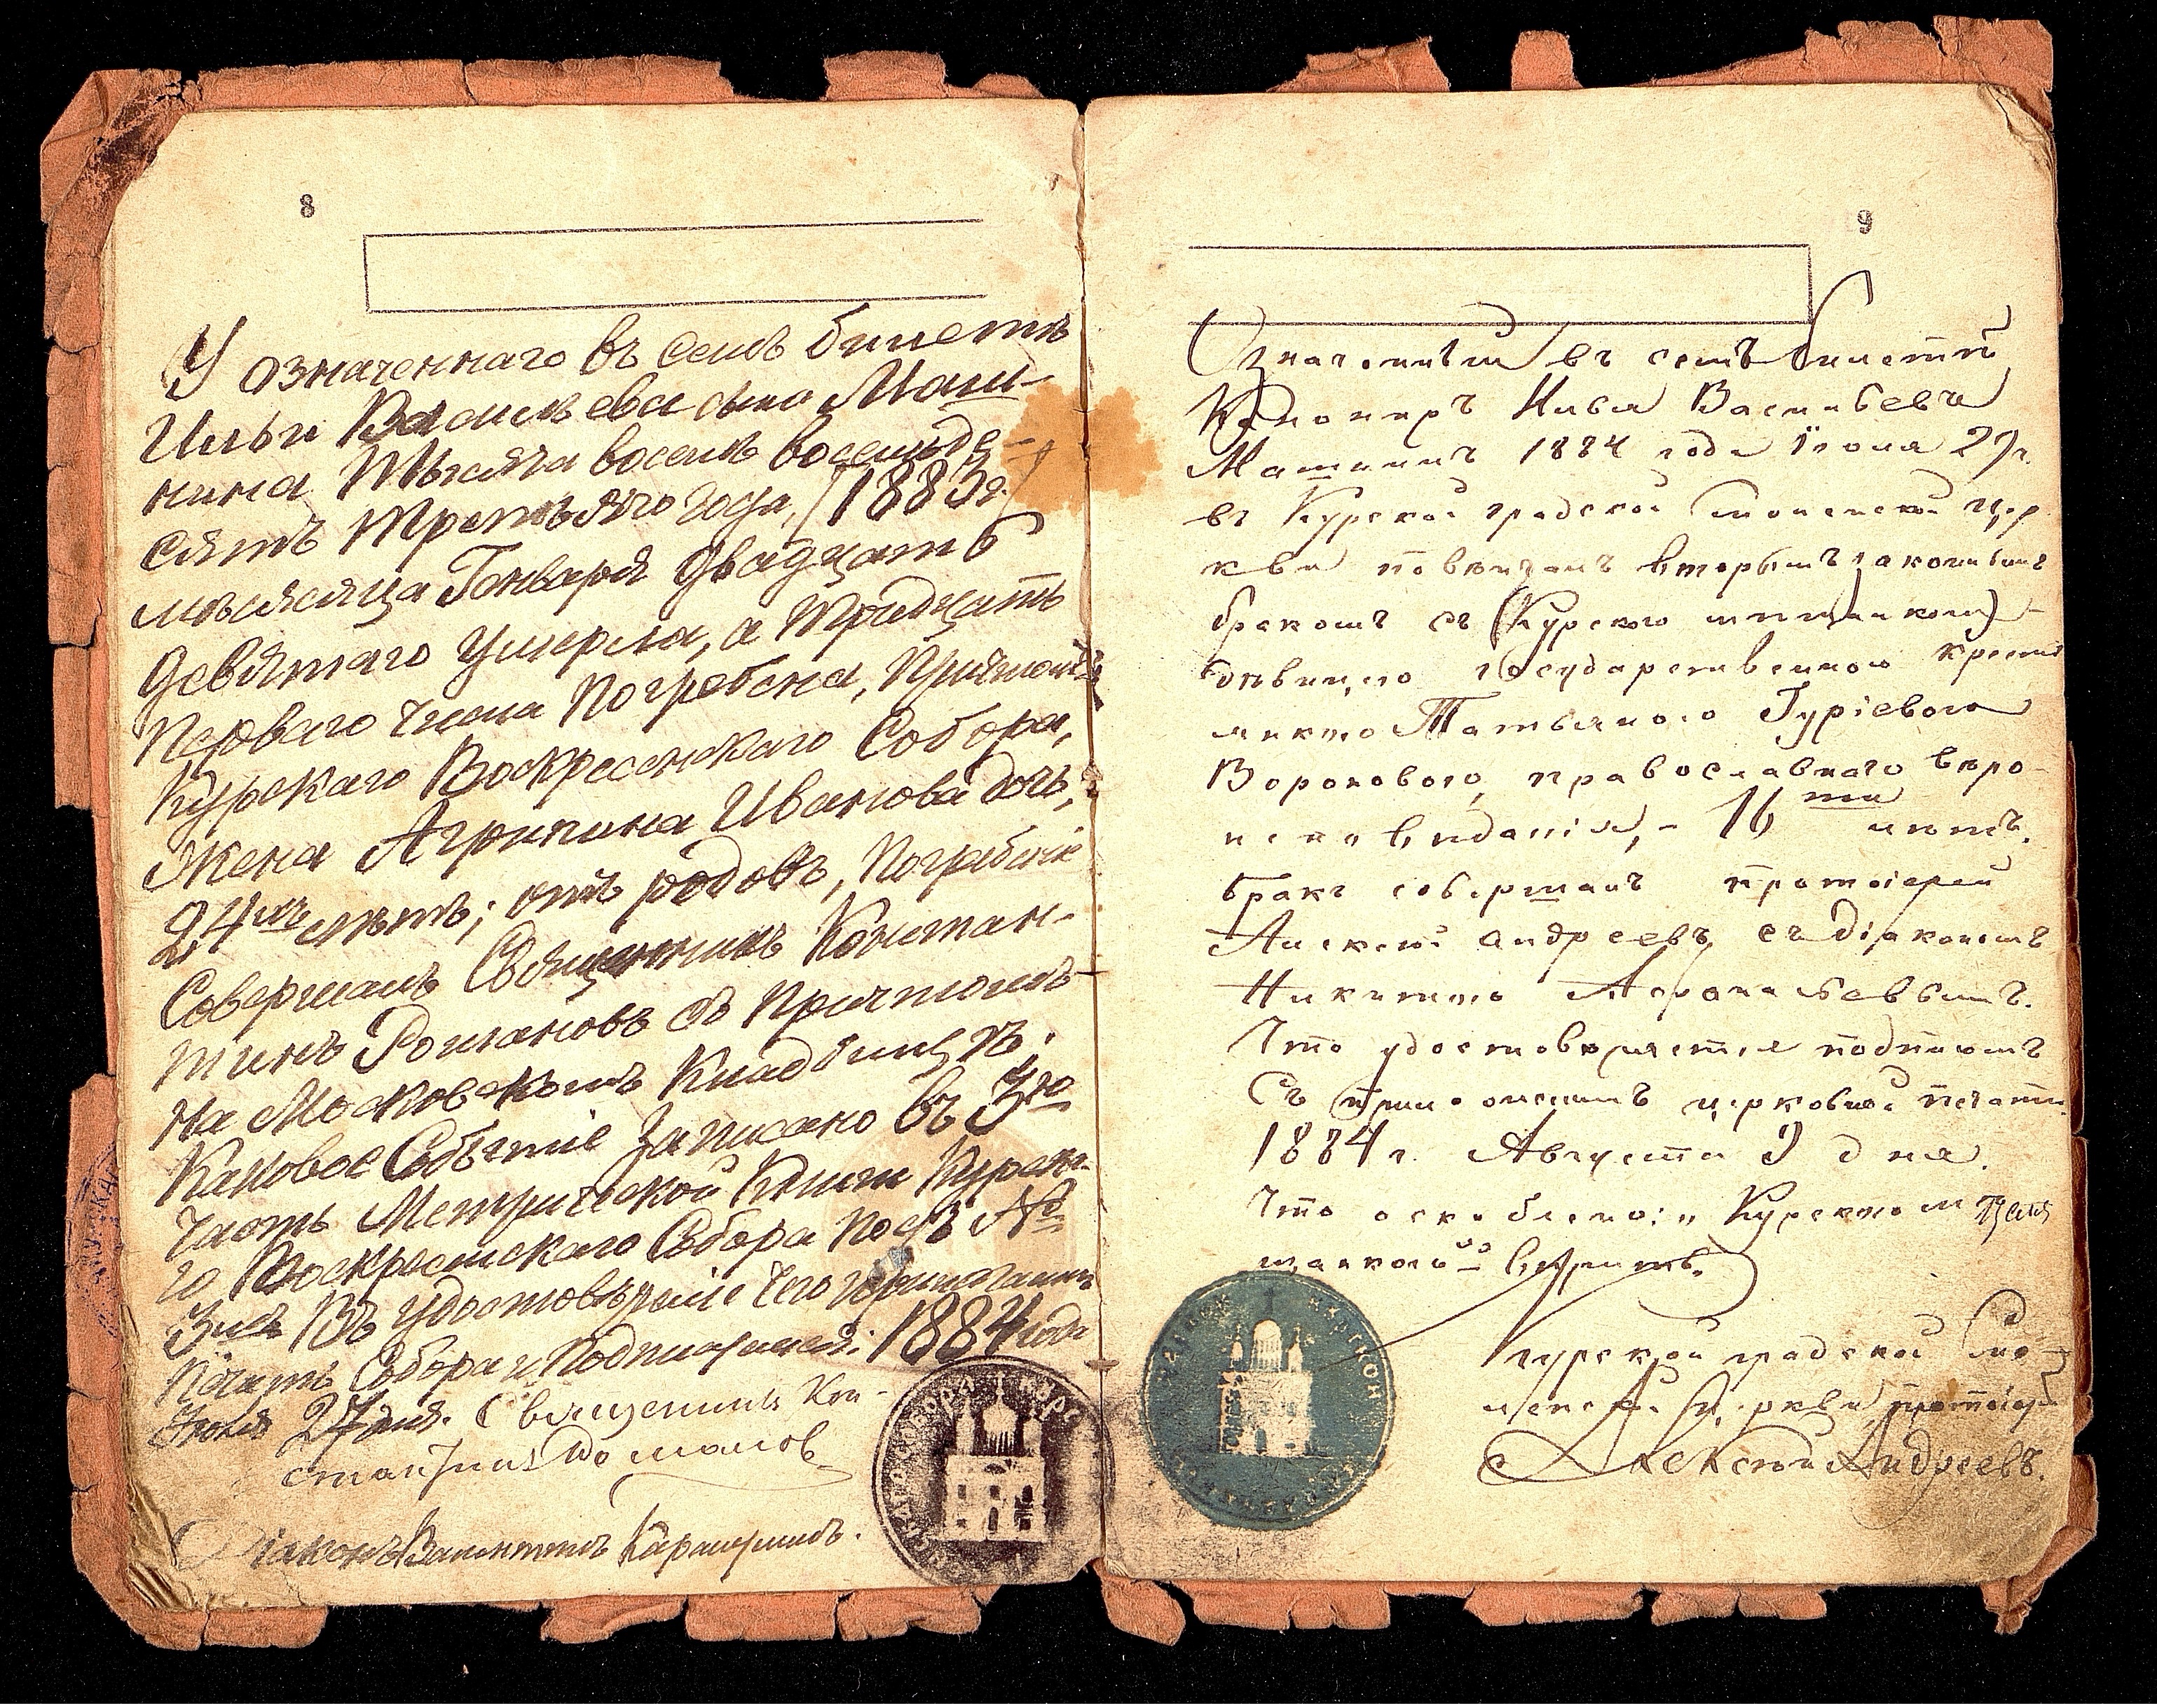 8
У означеннаго въ семъ билетѣ
Ильи Васильева сына Маш-
нина Тысяча восемь восемьде-
сятъ третьяго года, (1883 г.)
мѣсяца Генваря двадцать
девятаго умерла, а тридцать
перваго числа погребена, Причтомъ
Курскаго Воскресенскаго Собора,
жена Агрипина Иванова дочь,
24 лѣтъ; отъ родовъ, Погребенiе
Совершалъ Священникъ Констан-
тинъ Романовъ съ Причтомъ
на Московскомъ Кладбищѣ;
Каковое Событiе Записано въ 3ю
часть Метрической Книги Курска-
го Воскресенскаго Собора подъ №
Въ удостовѣренiе чего прилагаемъ
Печать Собора и Подписуемся: 1884 года
Iюля 27 дня. Священникъ Кон-
стантинъ Романовъ
Дiаконъ Валентинъ
9
Означенный въ семъ билетѣ
Канониръ Илья Васильевъ
Машнинъ 1884 года Iюля 29 г.
въ Курской градской Смоленской цер
кви повѣнчанъ вторымъ законнымъ
бракомъ съ Курскою мѣщанкою
дѣвицею государственною кресть
янкою Татьяною Гурiевою
Вороновою, православнаго вѣро-
исповѣданiя, - 16 ти лѣтъ.
бракъ совершалъ протоiерей
Алексѣй Андреевъ съ дiакономъ
Никитою
Что удостовѣряется подписомъ
Съ приложенiемъ церковной печати.
1884 г. Августа 3 дня.
Что
Курской градской Смо-
ленской Церкви протоiерей
Алексѣй Андреевъ.